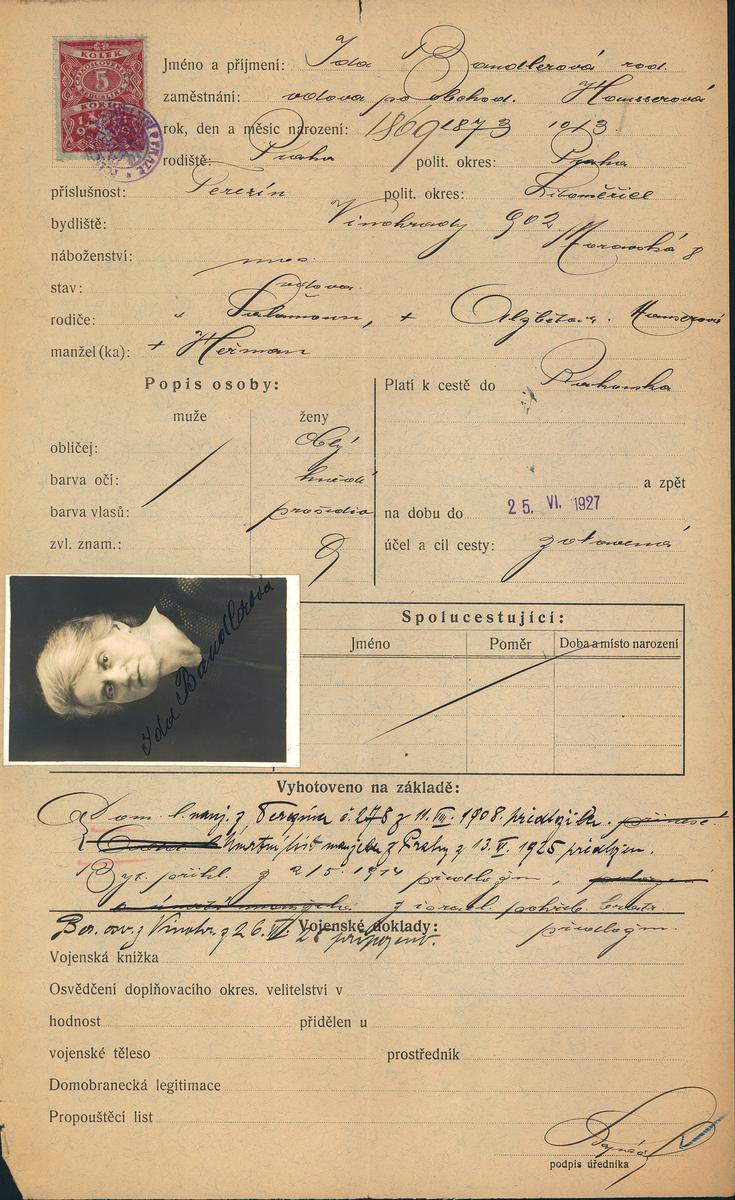 KOLEK
5
Jméno a příjmení: Ida Bandlerová rod.
zaměstnání: vdova po obchod. Hausserová
rok, den a měsíc narození: 1869 1873 10/3
rodiště: Praha polit. okres: Praha
příslušnost: Terezín polit. okres: Litoměřice
bydliště: Vinohrady 902 Moravská 8
náboženství:
stav: vdova
rodiče: Salamoun, + Alžběta
manžel(ka): + Heřman
Popis osoby:
muže ženy
obličej: oblý
barva očí: hnědé
barva vlasů: prošedivělé
zvl. znam.:
Platí k cestě do Rakouska
a zpět
na dobu do 25. VI. 1927
účel a cíl cesty: zotavená
Ida Bandlerová
Spolucestující:
Jméno Poměr Doba a místo narození
Vyhotoveno na základě:
Dom. l. manž. z Terezína č. 278 z 11. VII. 1908. předložila.
Úmrtní list manžela z Prahy z 13. V. 1925 předložen.
Byt. přihl. z 2/5. 1914 předlož.,
z israel. pohřeb. bratr.
předlož.
Bez. osv. z Vinohr. z 26. VI. 25 připojeno.
Vojenské doklady:
Vojenská knížka
Osvědčení doplňovacího okres. velitelství v
hodnost přidělen u
vojenské těleso prostředník
Domobranecká legitimace
Propouštěcí list
podpis úředníka